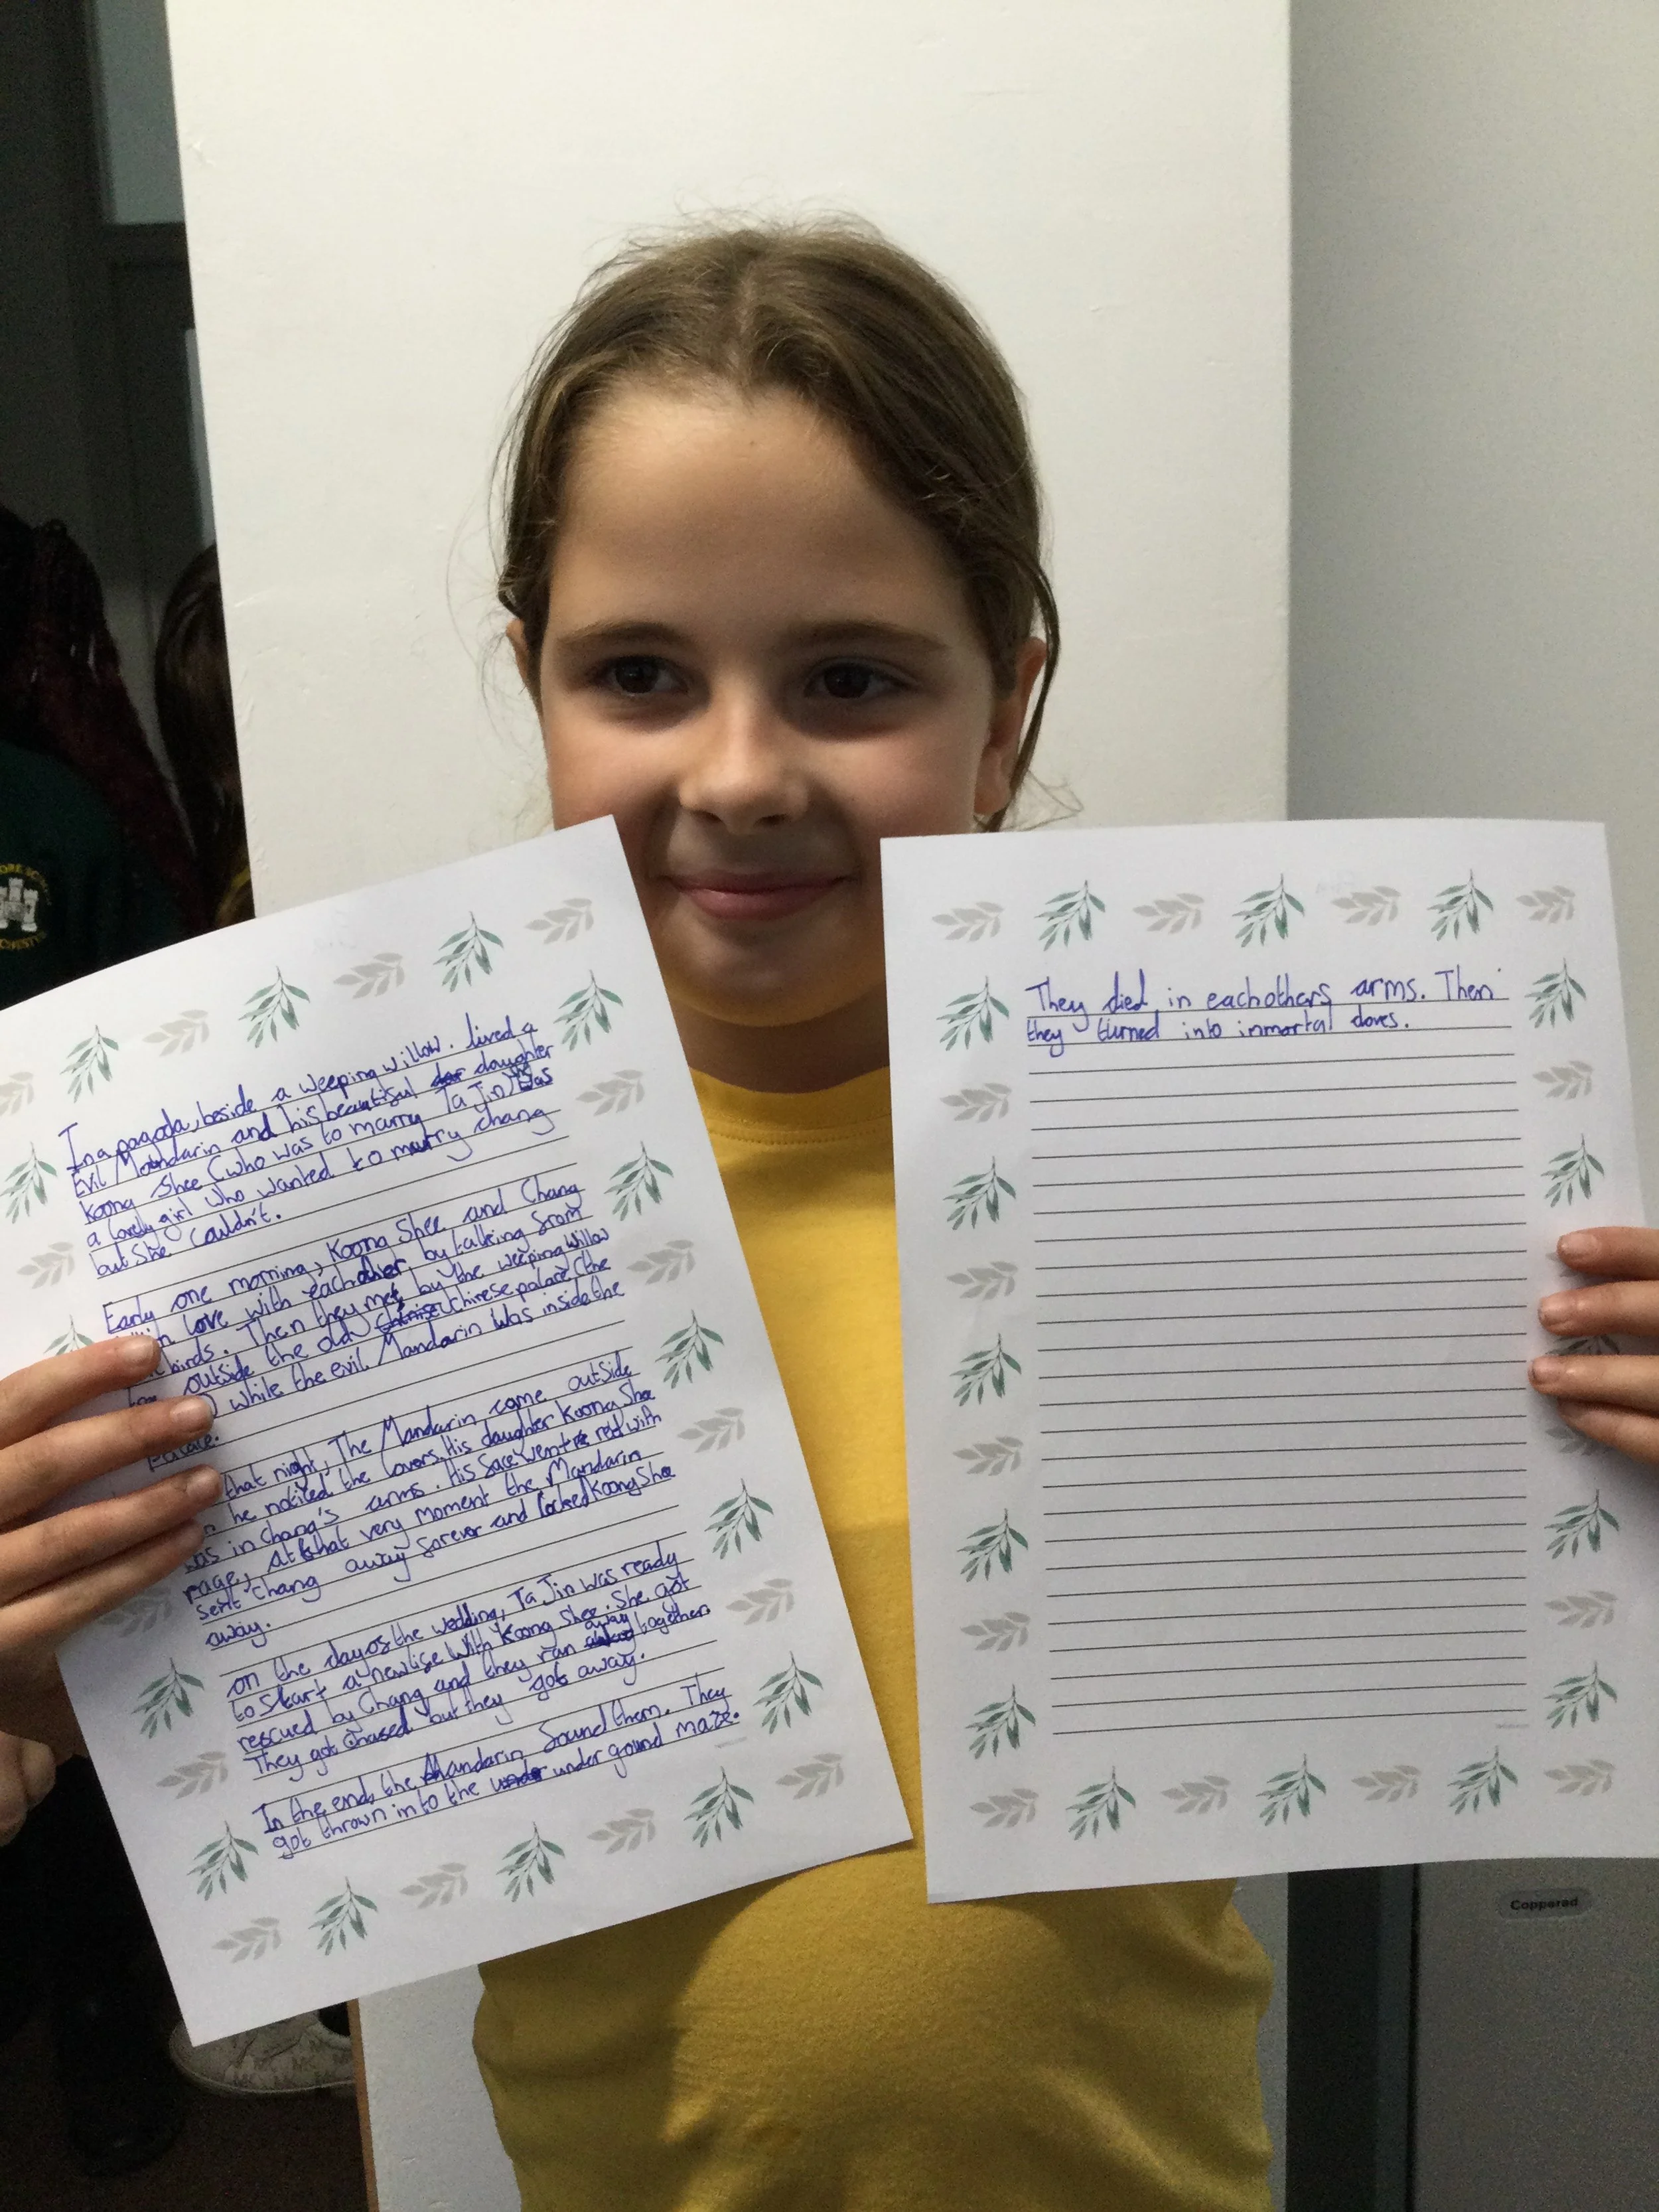 In a pagoda, beside a weeping willow. lived a
Evil Mandarin and his beautiful daughter
Koong Shee (who was to marry Ta Jin) was
a lovely girl who wanted to marry chang
but she couldn't.
Early one morning, Koong Shee and Chang
in love with eachother, by talking from
birds. Then they met by the weeping willow
outside the old Chinese palace (the
) while the evil Mandarin was inside the
palace.
that night, The Mandarin come outside
he noticed the lovers. His daughter Koong Shee
was in chang's arms. His face went red with
rage, at that very moment the Mandarin
sent chang away forever and locked Koong Shee
away.
on the day of the wedding, Ta Jin was ready
to start a new life with Koong Shee. She got
rescued by Chang and they ran away together.
They got chased but they got away.
In the end, the Mandarin found them. They
got thrown in to the under gound maze.
They died in eachothers arms. Then
they turned into inmortal doves.
Copperad